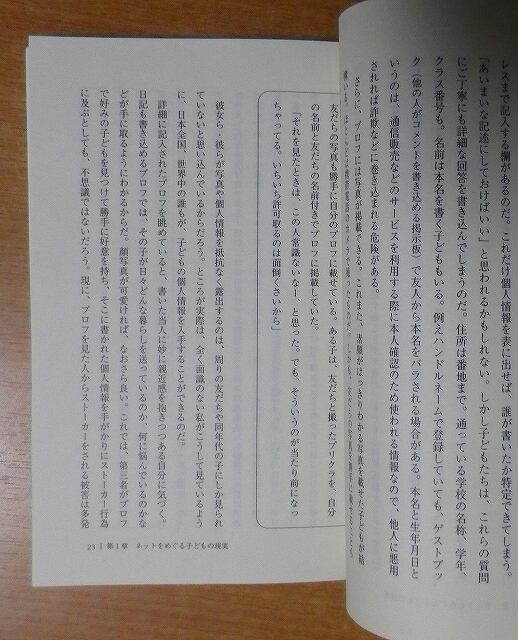 レスまで記入する欄があるのだ。これだけ個人情報を表に出せば、誰が書いたか特定できてしまう。
「あいまいな記述にしておけばいい」と思われるかもしれない。しかし子どもたちは、これらの質問
にご丁寧にも詳細な回答を書き込んでしまうのだ。住所は番地まで。通っている学校の名称、学年、
クラス番号も。名前は本名を書く子どももいる。例えハンドルネームで登録していても、ゲストブッ
ク（他の人がコメントを書き込める掲示板）で友人から本名をバラされる場合がある。本名と生年月日と
いうのは、通信販売などのサービスを利用する際に本人確認のため使われる情報なので、他人に悪用
されれば詐欺などに巻き込まれる危険がある。
さらに、プロフには写真が掲載できる。これまた、素顔がはっきりわかる写真を載せた子どもが結
友だちの写真も勝手に自分のプロフに載せている。ある子は、友だちと撮ったプリクラを、自分
の名前と友だちの名前付きでプロフに掲載していた。
「それを見たときは、この人常識ないなー、と思った。でも、そういうのが当たり前になっ
ちゃってる。いちいち許可取るのは面倒くさいから」
彼女ら・彼らが写真や個人情報を抵抗なく露出するのは、周りの友だちや同年代の子にしか見られ
ていないと思い込んでいるからだろう。ところが実際は、全く面識のない私がこうして見ているよう
に、日本全国、世界中の誰もが、子どもの個人情報を入手することができるのだ。
詳細に記入されたプロフを眺めていると、書いた当人に妙に親近感を抱きつつある自分に気づく。
日記も書き込めるプロフでは、その子が日々どんな暮らしを送っているのか、何に悩んでいるのかな
どが手に取るようにわかるからだ。顔写真が可愛ければ、なおさら良い。これでは、第三者がプロフ
で好みの子どもを見つけて勝手に好意を持ち、そこに書かれた個人情報を手がかりにストーカー行為
に及ぶとしても、不思議ではないだろう。現に、プロフを見た人からストーカーをされる被害は多発
23 第1章 ネットをめぐる子どもの現実